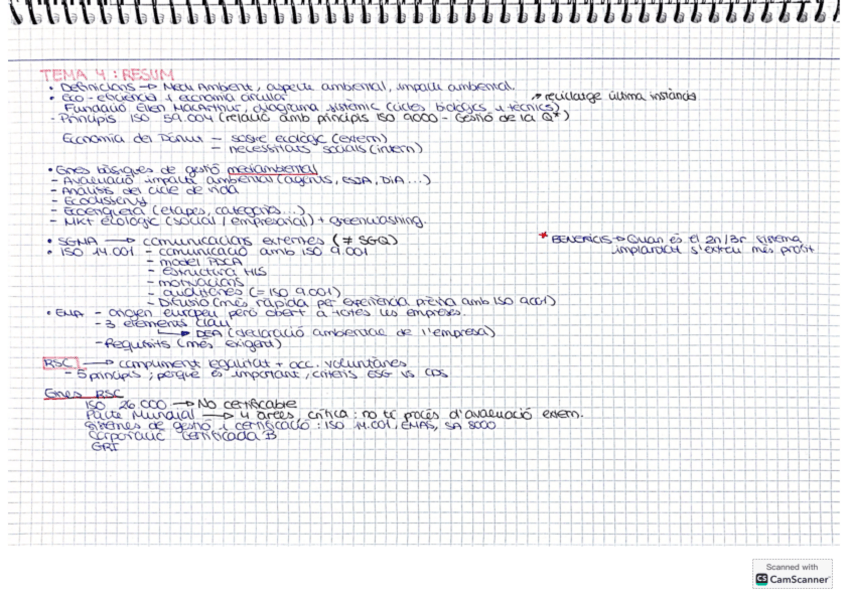 TEMA 4: RESUM
• Definicions → Medi Ambient, aspecte ambiental, impacte ambiental.
• Eco-eficiència i economia circular
↗ reciclatge última instància
Fundació Ellen MacArthur, diagrama sistèmic (cicles biològics i tècnics)
- Principis ISO 59.004 (relació amb principis ISO 9000 - Gestió de la Q*)
Economia del Dònut - sostre ecològic (extern)
- necessitats socials (intern)
• Eines bàsiques de gestió mediambiental
- Avaluació impacte ambiental (agents, EsIA, DIA...)
- Anàlisis del cicle de vida
- Ecodisseny
- Ecoetiqueta (etapes, categories...)
- Mkt ecològic (social / empresarial) + greenwashing.
• SGMA → comunicacions externes (≠ SGQ)
• ISO 14.001 - comunicació amb ISO 9.001
- model PDCA
- estructura HLS
- motivacions
- auditories (= ISO 9.001)
- Difusió (més ràpida per experiència prèvia amb ISO 9001)
* BENEFICIS → Quan és el 2n/3r sistema
implantat s'extreu més profit
• EMA - origen europeu però obert a totes les empreses.
- 3 elements clau
→ DEA (declaració ambiental de l'empresa)
- Requisits (més exigent)
RSC → compliment legalitat + acc. voluntàries
- 5 principis; perquè és important, criteris ESG vs CDS
Eines RSC
ISO 26.000 → No certificable
Pacte Mundial → 4 àrees, crítica: no té procés d'avaluació extern.
Sistemes de gestió i certificació: ISO 14.001, EMAS, SA 8000
Corporació Certificada B
GRI
Scanned with
CS CamScanner